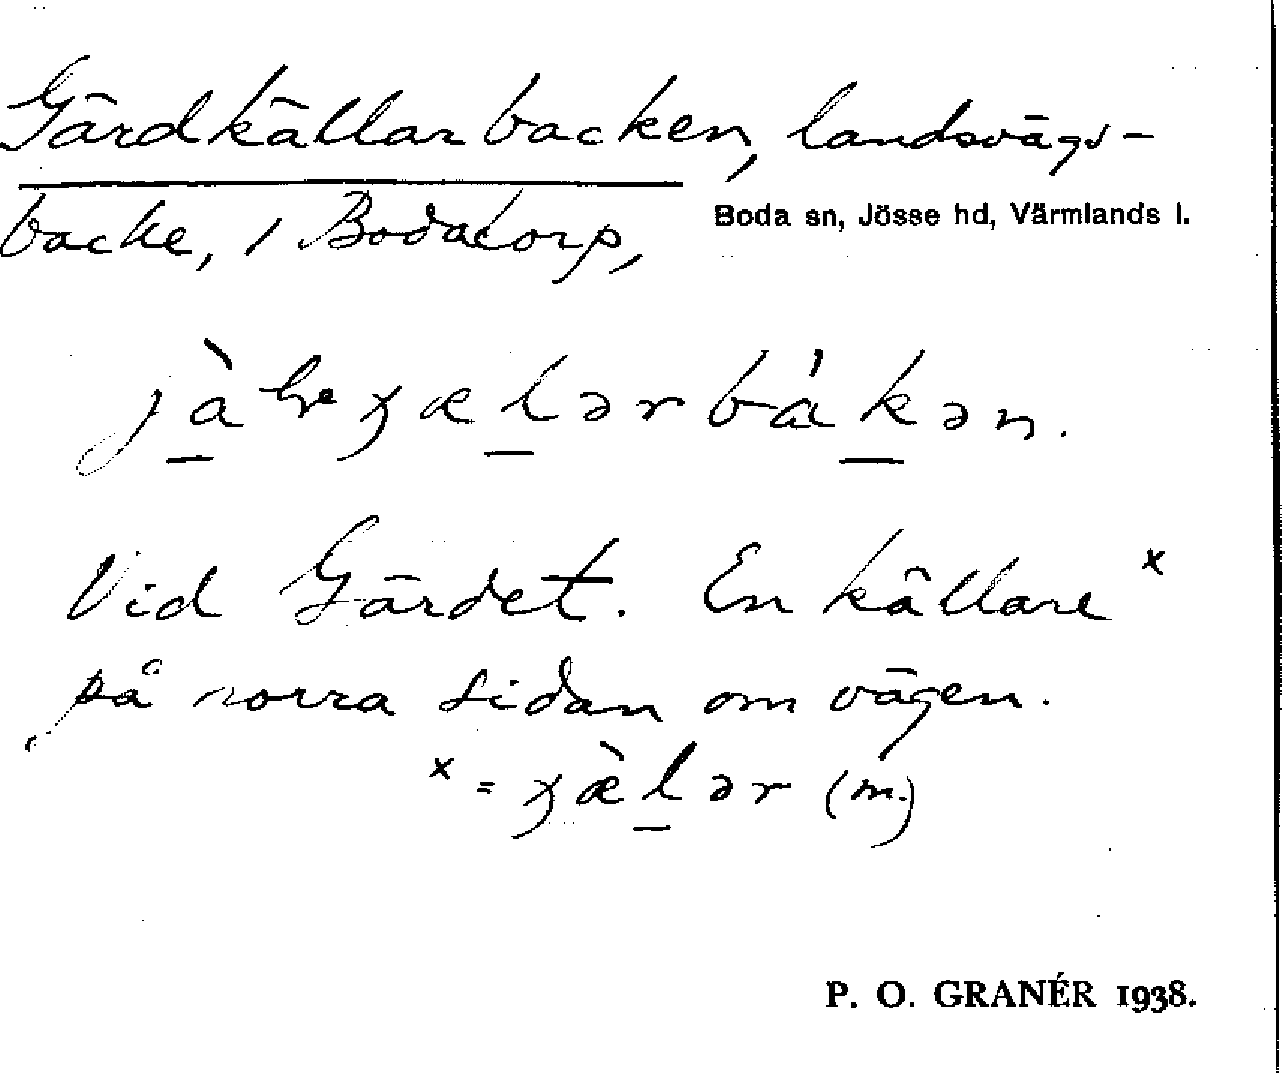 Gärdkällarbacken, landsvägs-
backe, i Bodatorp,
Boda sn, Jösse hd, Värmlands l.
Vid Gärdet. En källare x
på norra sidan om vägen.
x = (m.)
P. O. GRANÉR 1938.